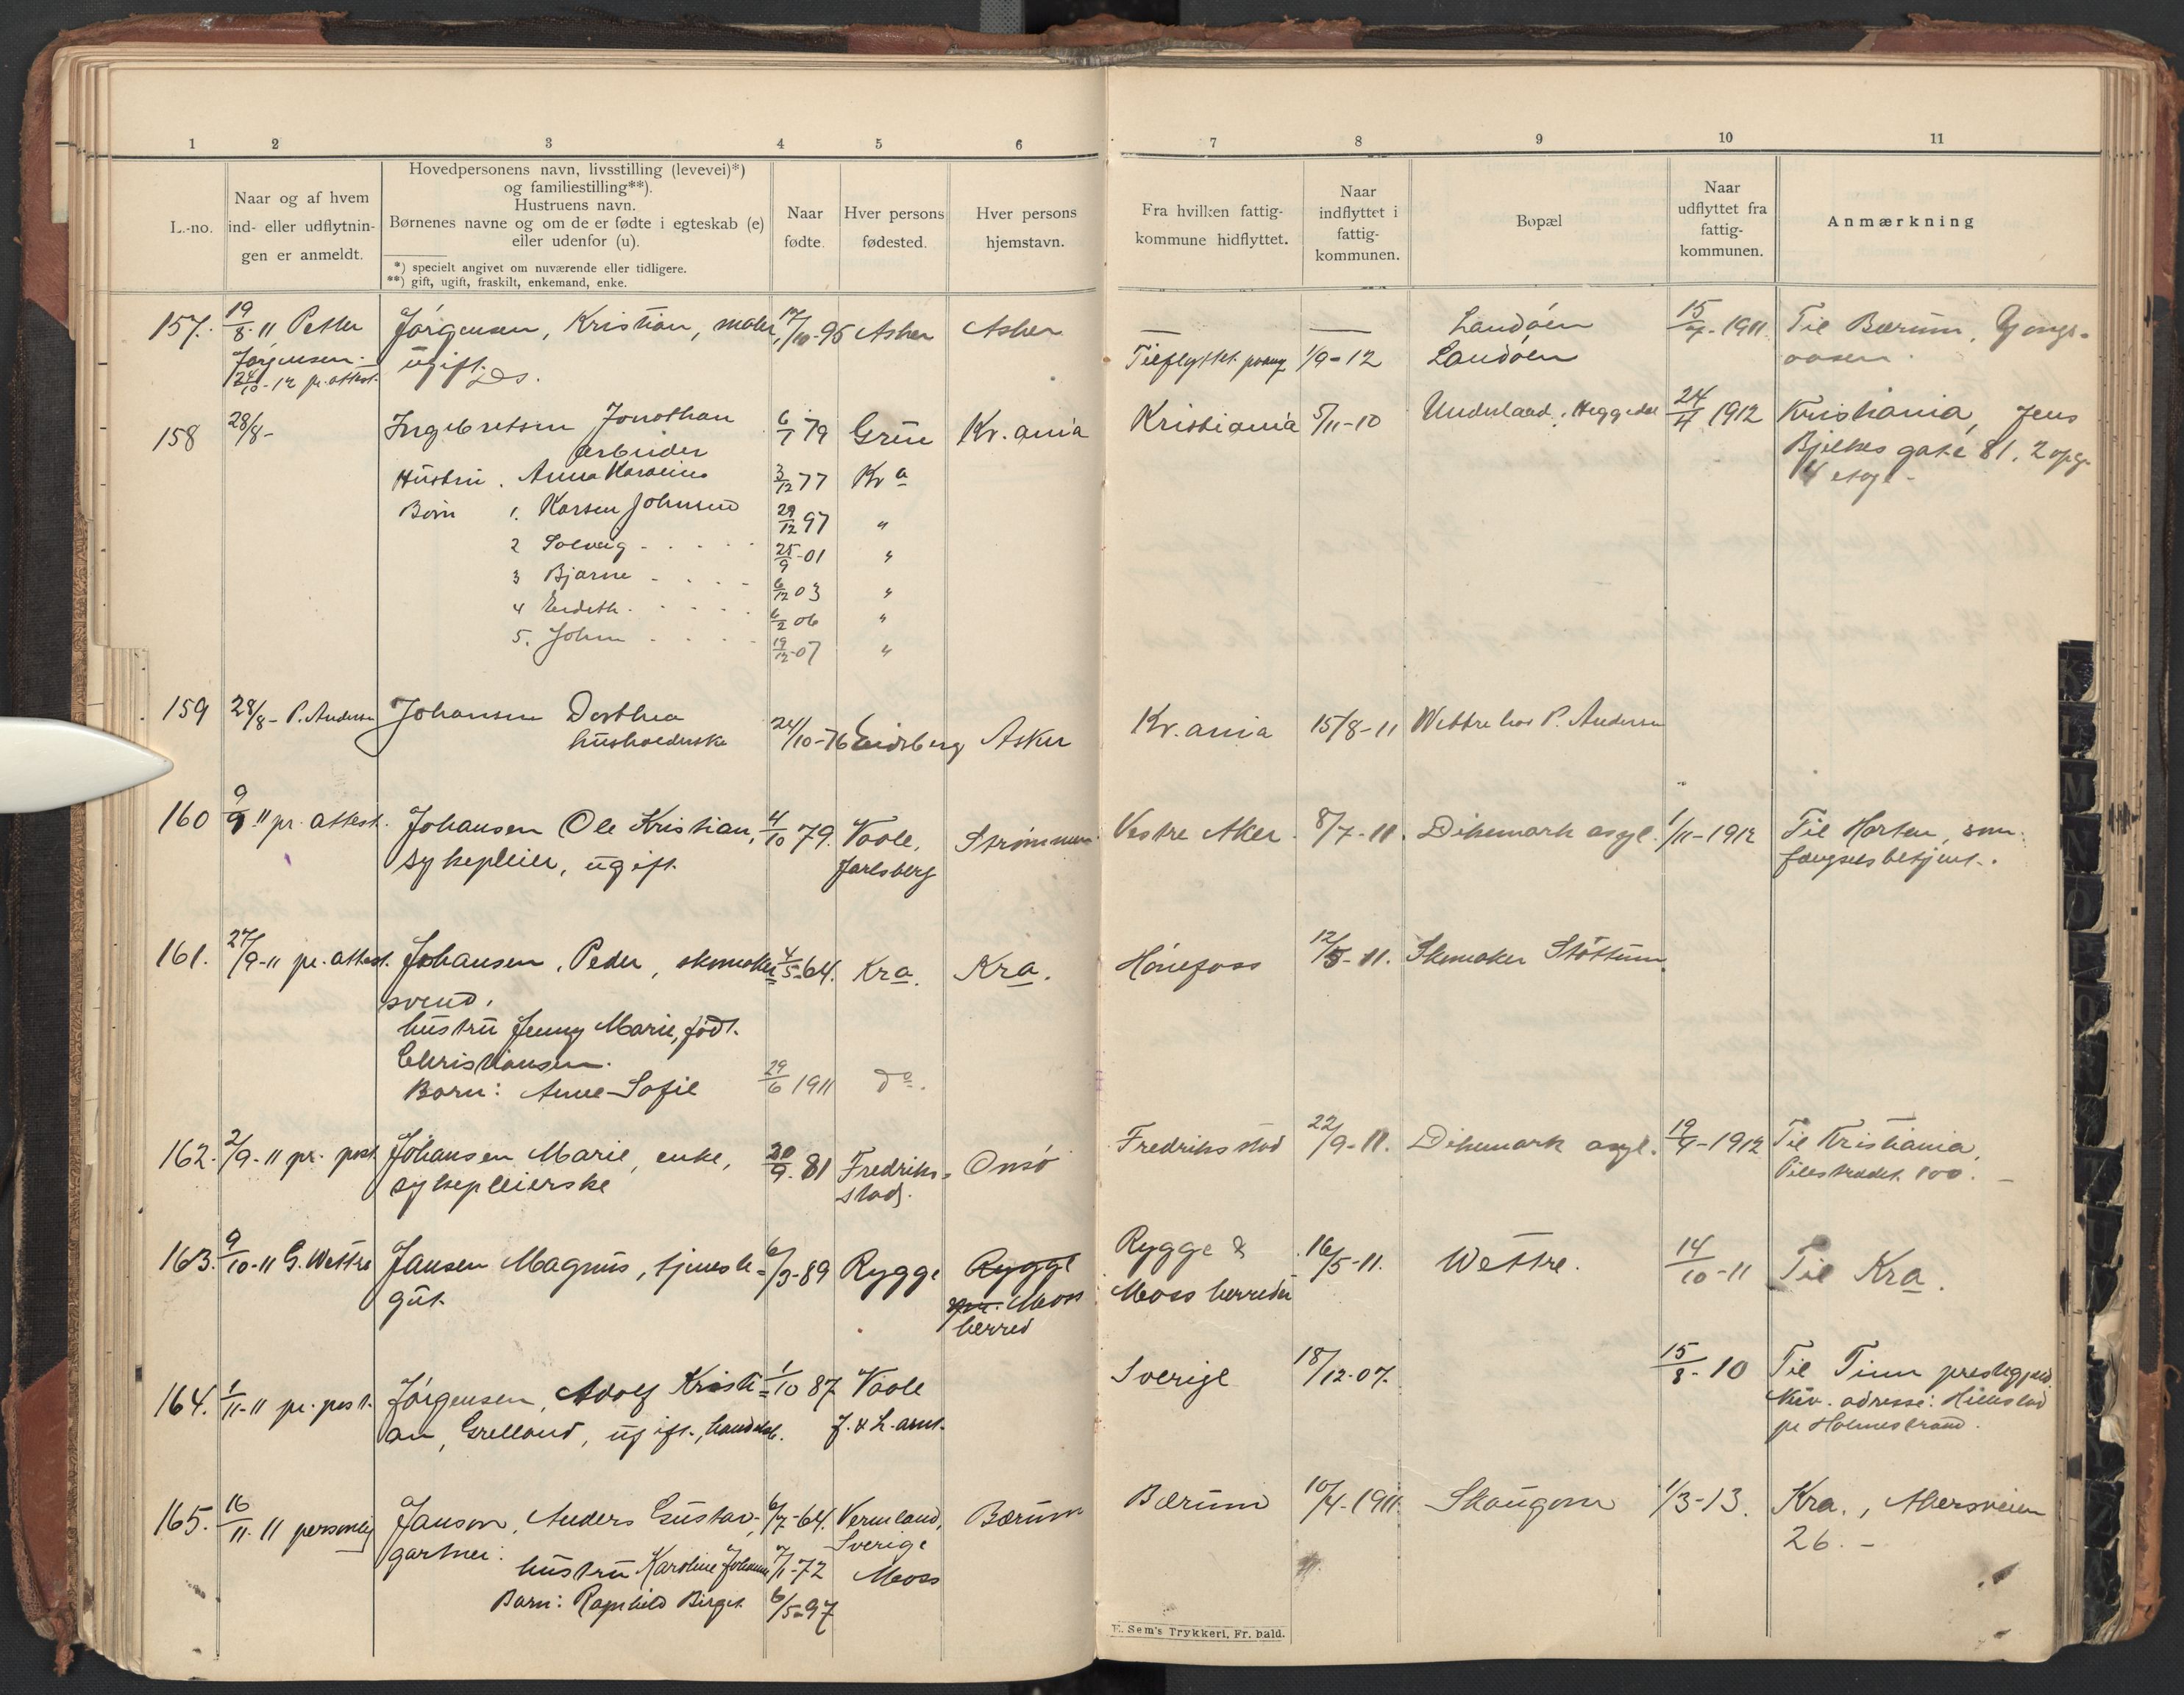 1 2 3 4 5 6 7 8 9 10 11
L.-no.
Naar og af hvem
ind- eller udflytnin-
gen er anmeldt.
Hovedpersonens navn, livsstilling (levevei)*)
og familiestilling**).
Hustruens navn.
Børnenes navne og om de er fødte i egteskab (e)
eller udenfor (u).
*) specielt angivet om nuværende eller tidligere.
**) gift, ugift, fraskilt, enkemand, enke.
Naar
fødte.
Hver persons
fødested.
Hver persons
hjemstavn.
Fra hvilken fattig-
kommune hidflyttet.
Naar
indflyttet i
fattig-
kommunen.
Bopæl
Naar
udflyttet fra
fattig-
kommunen.
Anmærkning
157. 19/8-11 Petter Jörgensen, Kristian, maler, 17/10-95 Asker Asker — — Landöen 15/7-1911 Til Bærum,
Jörgensen. ugift. Tilflyttet 1/9-12 Landöen
24/10-12 pr. attest. Do.
158 28/8- Ingebretsen Jonathan 6/1 79 Grue Kr.ania Kristiania 5/11-10 Underland, Heggedal 24/4 1912 Kristiania, Jens
arbeider Bjelkes gate 81, 2 opg.
Hustru. Anna Karoline 3/12 77 Kra 4 etag.
Børn 1. Karsen Johnsen 29/12 97 "
2 Solveig - - - - 25/9-01 "
3 Bjarne - - - - 6/12 03 "
4 - - - - 6/2 06 "
5. John - - - 19/12-07 "
159 28/8- P. Andersen Johansen Dorthea 24/10-76 Eidsberg Asker Kr.ania 15/8-11 Wettre hos P. Andersen
husholderske
160 9/9-11 pr. attest. Johansen Ole Kristian, 4/10 79. Vaale, Strömmen Vestre Aker. 8/7-11. Dikemark asyl. 1/11-1912 Til Horten, som
sykepleier, ugift. Jarlsberg fængselsbetjent.
161. 27/9-11 pr. attest. Johansen, Peder, skomaker- 4/5-64. Kra. Kra. Hönefoss 12/5-11. Skomaker Stöttum.
svend.
hustru Jenny Marie, födt.
Christiansen.
Barn: Anne-Sofie 29/6 1911 do.
162. 2/9-11 pr. post Johansen Marie, enke, 20/9-81 Fredriks- Onsö Fredriksstad 22/9-11. Dikemark asyl. 19/4-1912 Til Kristiania,
sykepleierske stad. Pilestrædet 100. –
163. 9/10-11 G. Wettre Jansen Magnus, tjeneste- 6/3-89 Rygge Rygge Rygge & 16/5-11. Wettre. 14/10-11 Til Kra.
gut. Moss Moss herreder
herred
164. 1/11-11 pr. post. Jörgensen, Adolf Kristi- 1/10 87 Vaale Sverige 18/12-07. 15/8-10 Til Tinn prestegjeld
an, Grelland, ugift, J. & L. amt. Nuv. adresse: Hillestad
pr Holmestrand.
165. 16/11-11 personlig Janson, Anders Gustav- 6/7-64. Vermland, Bærum Bærum 10/4-1911. Skaugum 1/3-13. Kra., Akersveien
gartner. Sverige 26. –
hustru Karoline 7/1-72 Moss
Barn: Ragnhild Birgit 6/5-97
E. Sem's Trykkeri, Fr. hald.